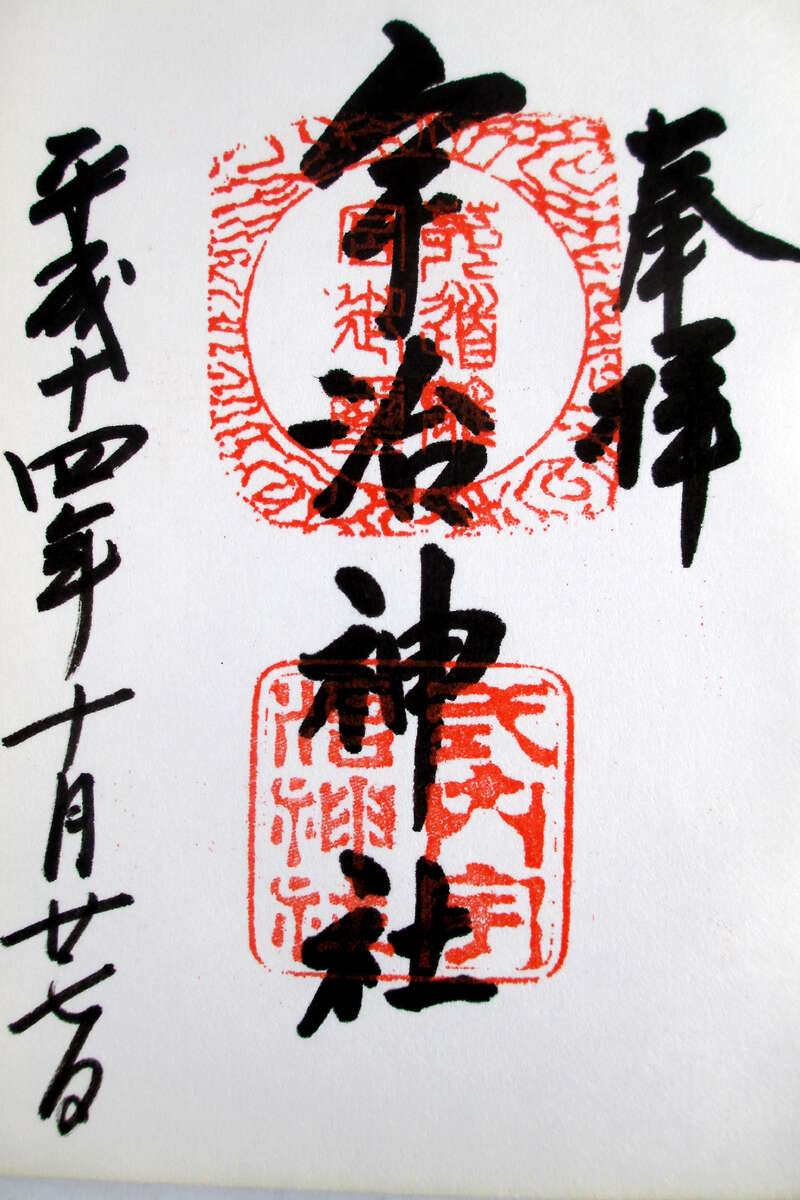 奉拝
宇治神社
式内宇
治神社
平成十四年十月廿七日